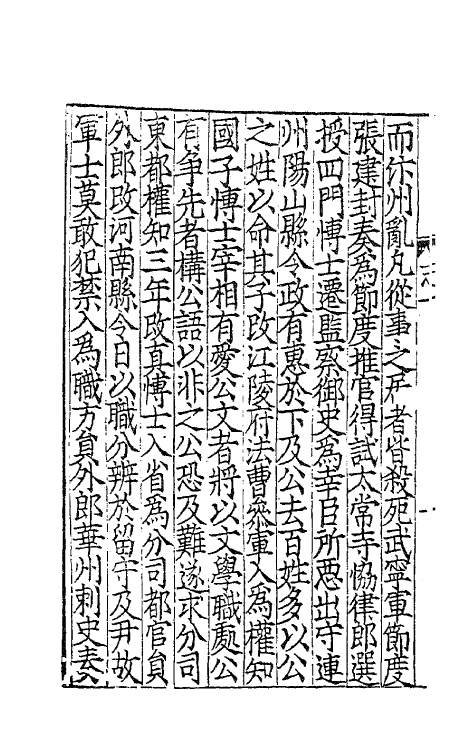 而汴州亂凡從事之居者皆殺死武寧軍節度
張建封奏為節度推官得試太常寺協律郎選
授四門博士遷監察御史為幸臣所惡出守連
州陽山縣令政有惠於下及公去百姓多以公
之姓以命其子改江陵府法曹叅軍入為權知
國子博士宰相有愛公文者將以文學職處公
有爭先者構公語以非之公恐及難遂求分司
東都權知三年改真博士入省為分司都官員
外郎改河南縣令日以職分辨於留守及尹故
軍士莫敢犯禁入為職方員外郎華州刺史奏